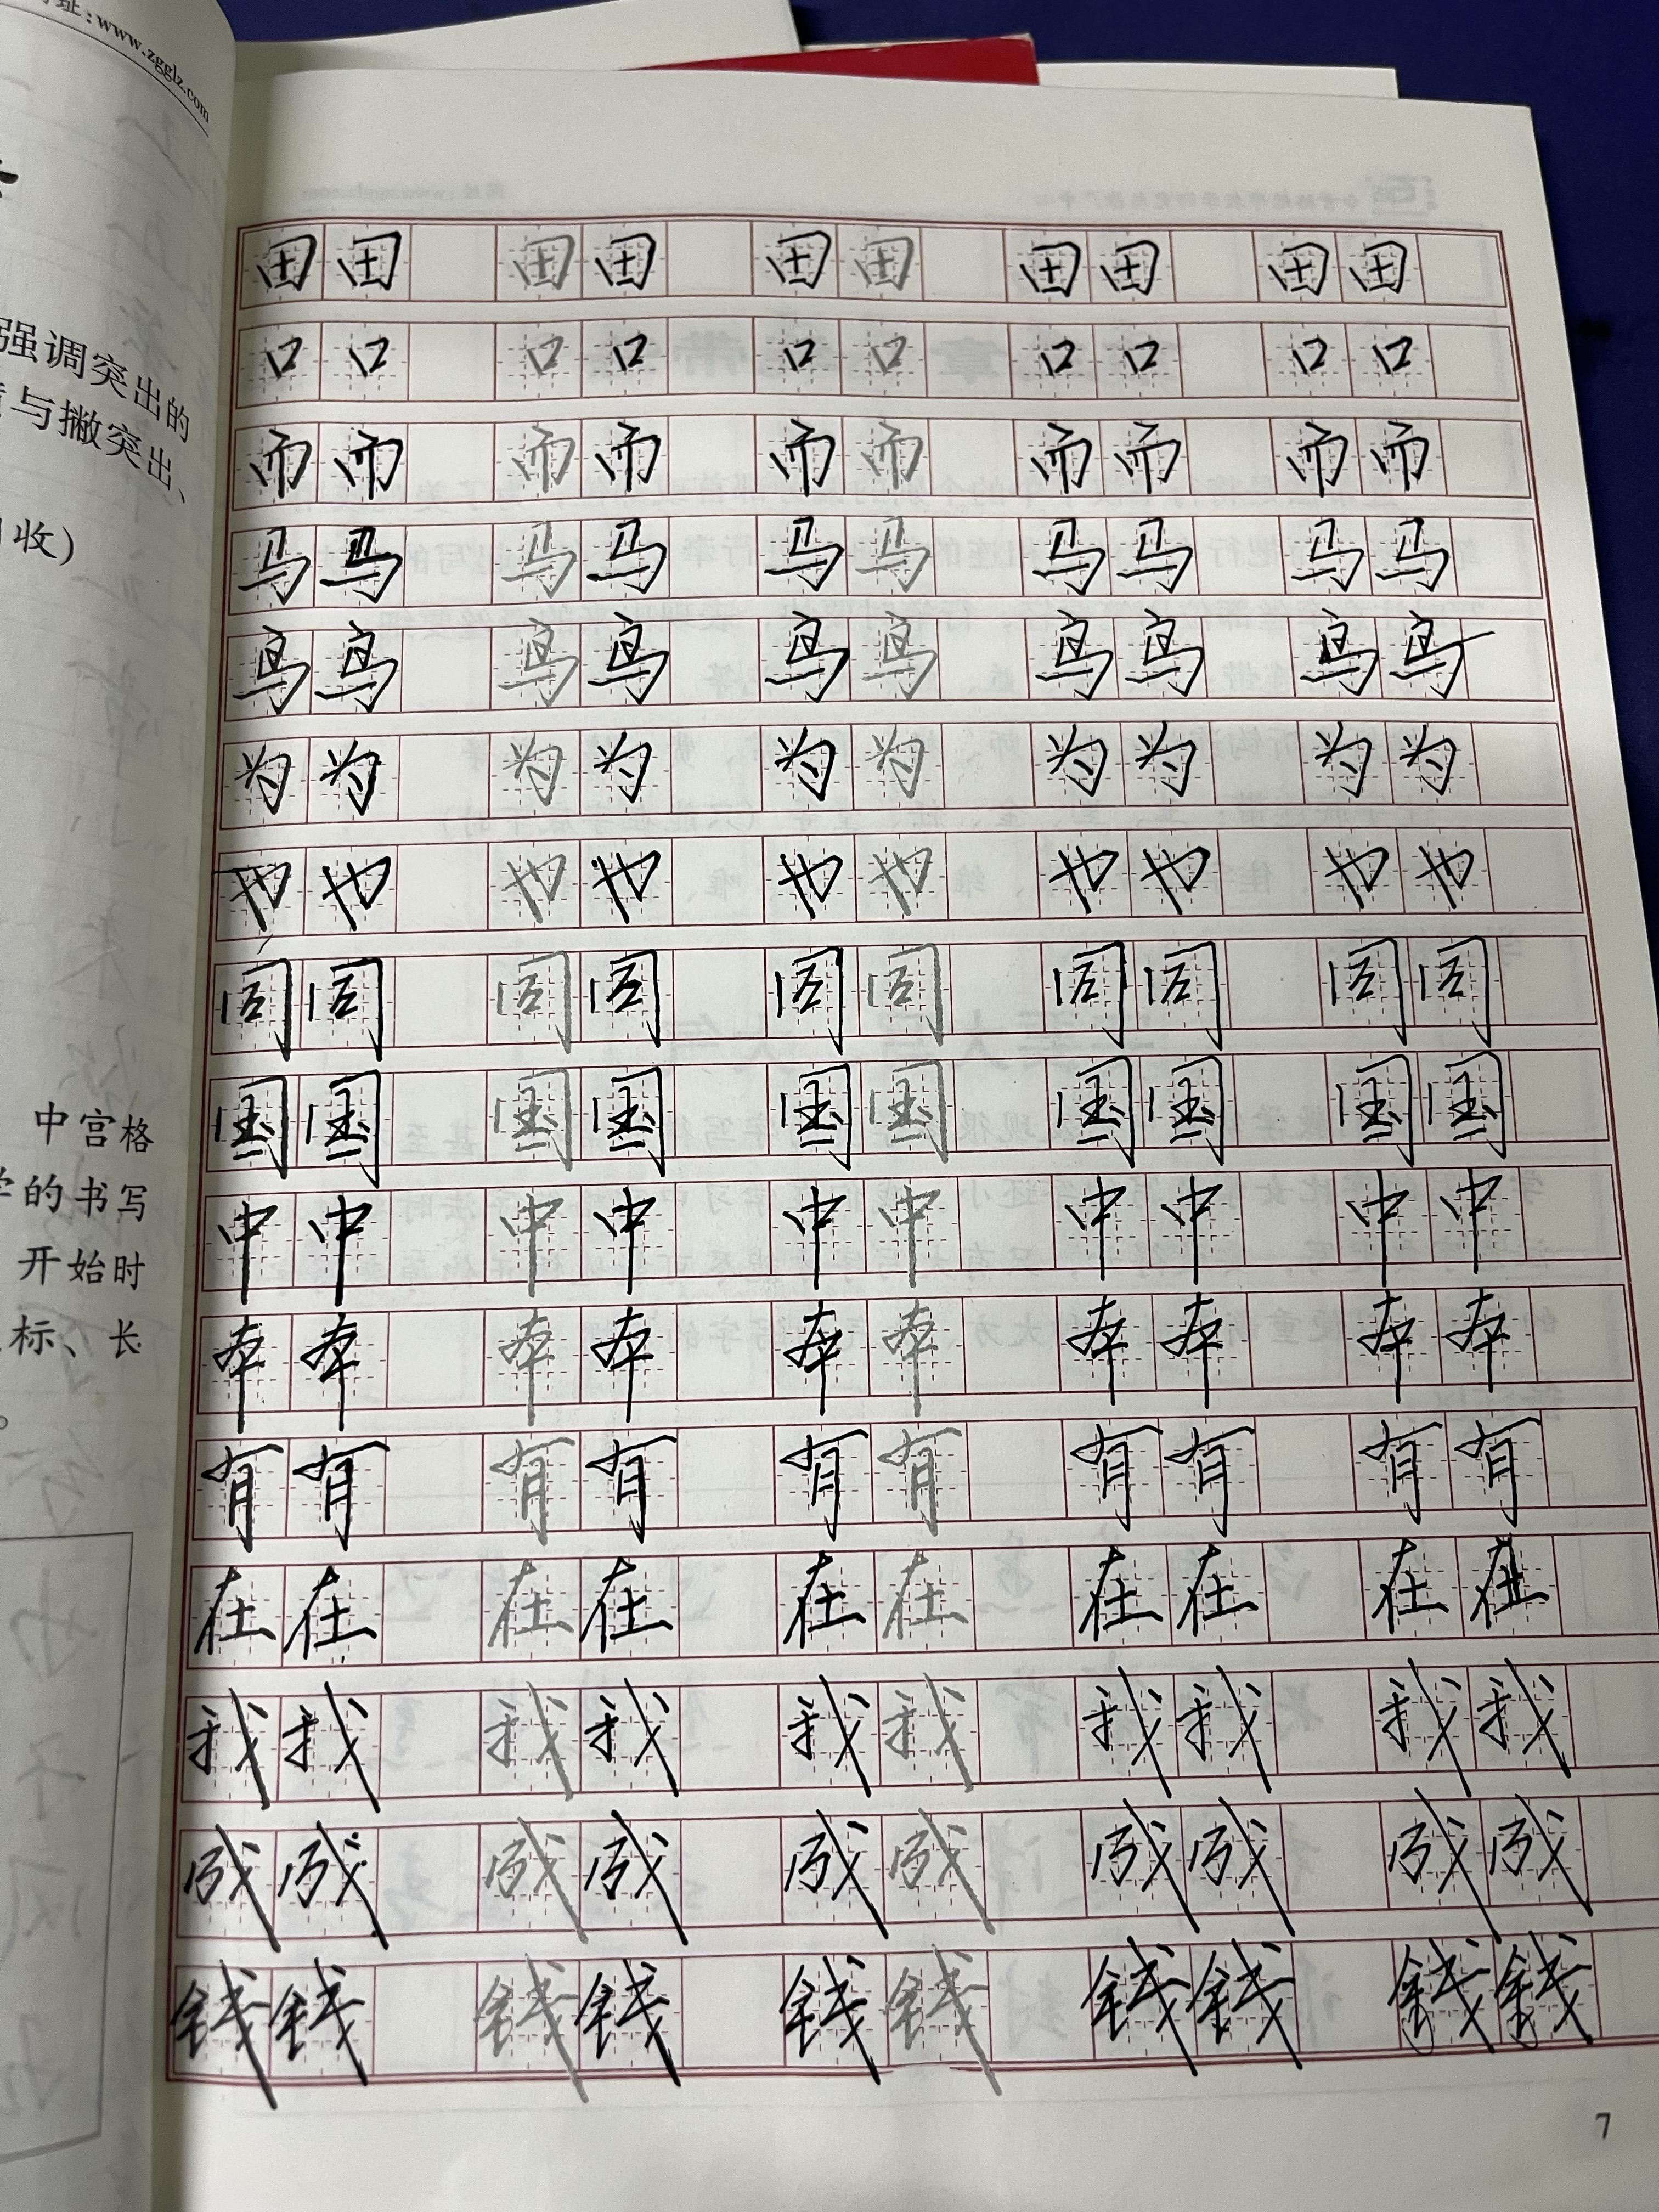 址:www.zgglz.com
强调突出的
与撇突出、
收)
中宫格
的书写
开始时
标、长
田田田田田田田田田田
口口口口口口口口口口
而而而而而而而而而而
马马马马马马马马马马
鸟鸟鸟鸟鸟鸟鸟鸟鸟鸟
为为为为为为为为为为
也也也也也也也也也也
固固固固固固固固固固
国国国国国国国国国国
中中中中中中中中中中
有有有有有有有有有有
在在在在在在在在在在
我我我我我我我我我我
成成成成成成成成成成
钱钱钱钱钱钱钱钱钱钱
7